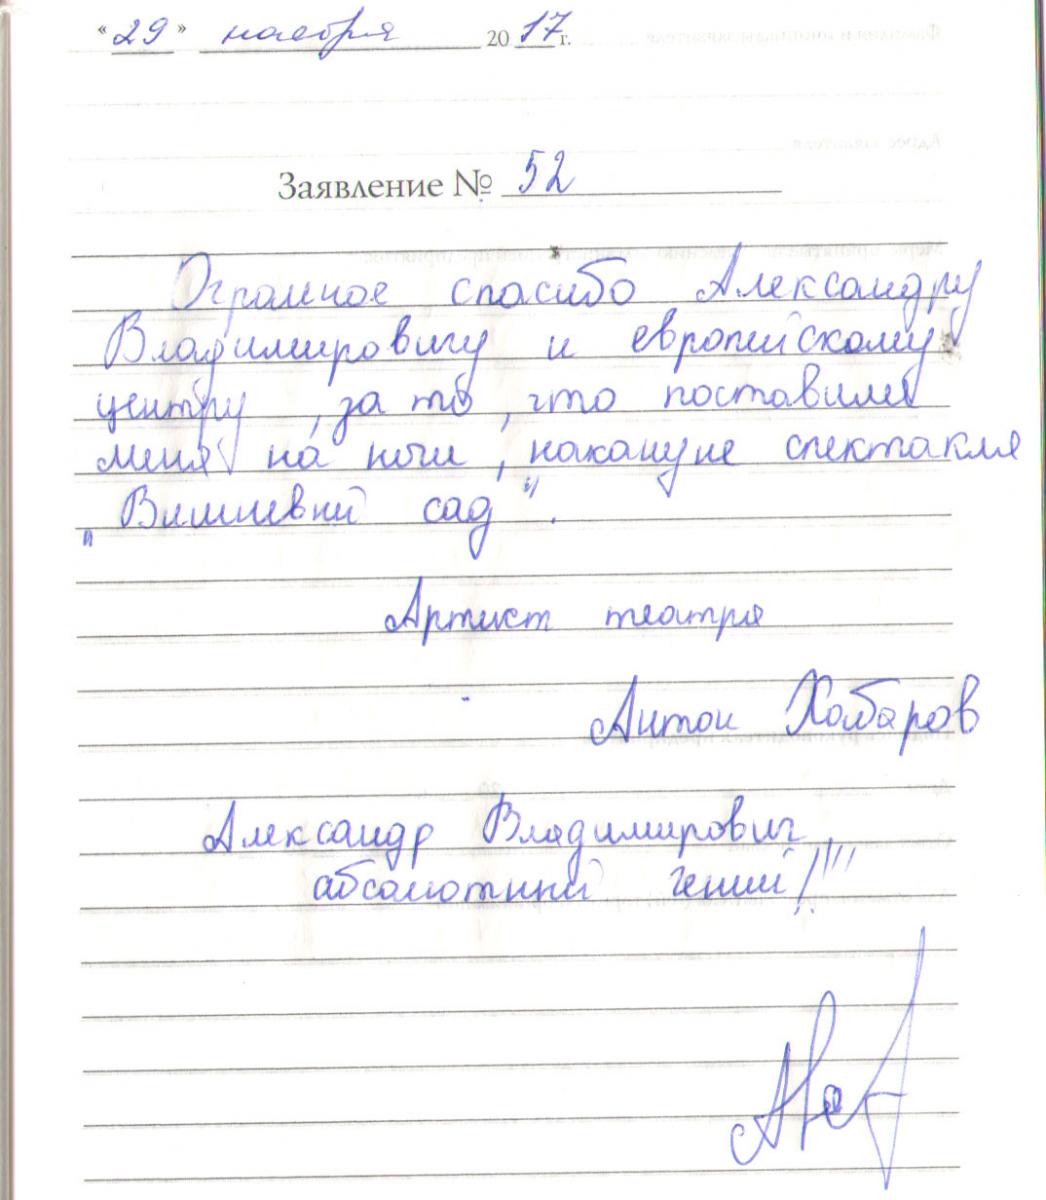 "29" ноября 2017 г.
Заявление № 52
Огромное спасибо Александру
Владимировичу и европейскому
центру, за то, что поставили
меня на ноги, накануне спектакля
„Вишневый сад".
Артист театра
Антон Хабаров
Александр Владимирович
абсолютный гений!!!!